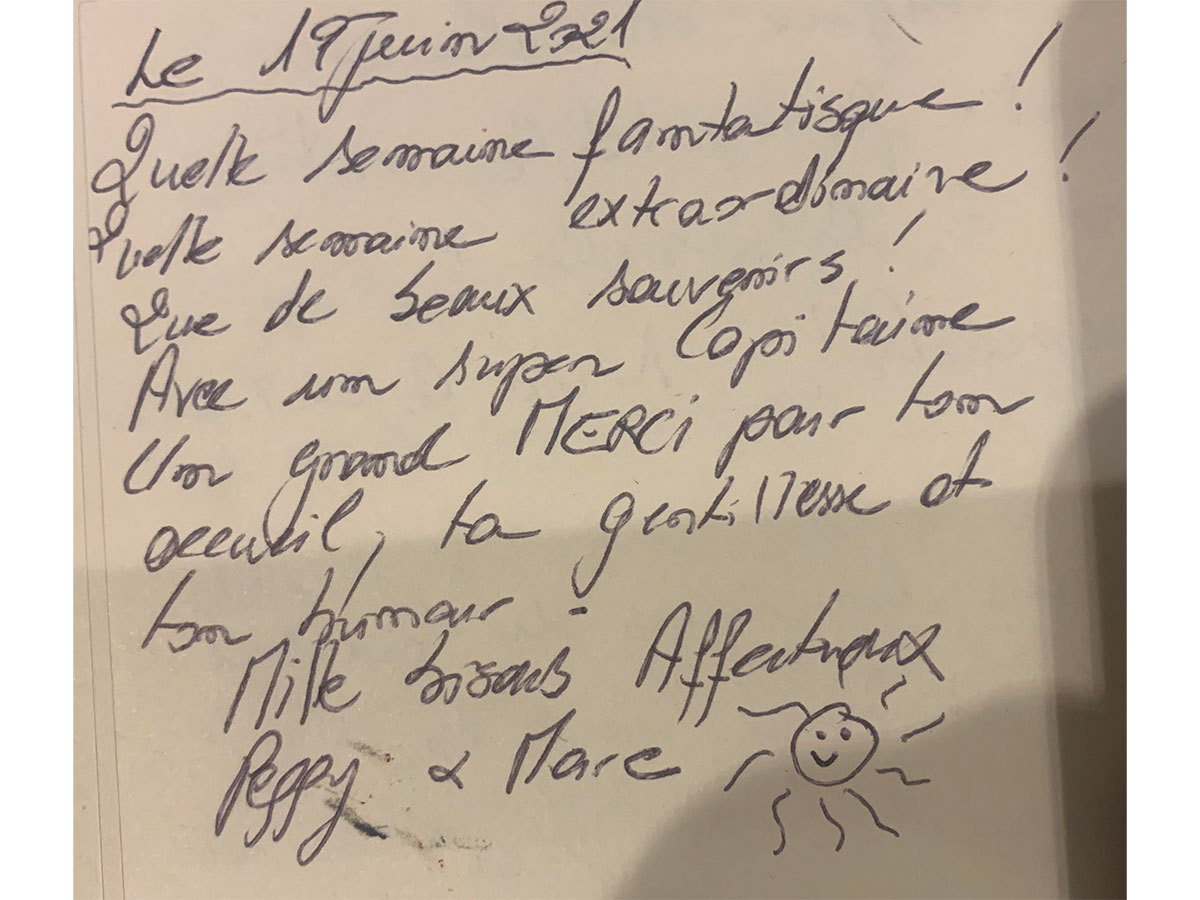 Le 19 Juin 2021
Quelle semaine fantatisque !
Quelle semaine extraordinaire !
Que de beaux souvenirs !
Avec un super Capitaine
Un grand MERCi pour ton
accueil, ta gentillesse et
ton humour.
Mille bisous Affectueux
Peggy & Marc